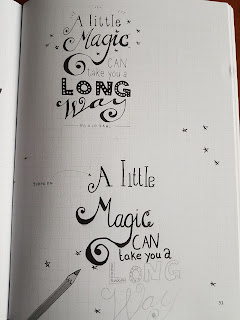 A little
Magic
CAN
take you a
LONG
Way
A little
Magic
CAN
take you a
LONG
Way